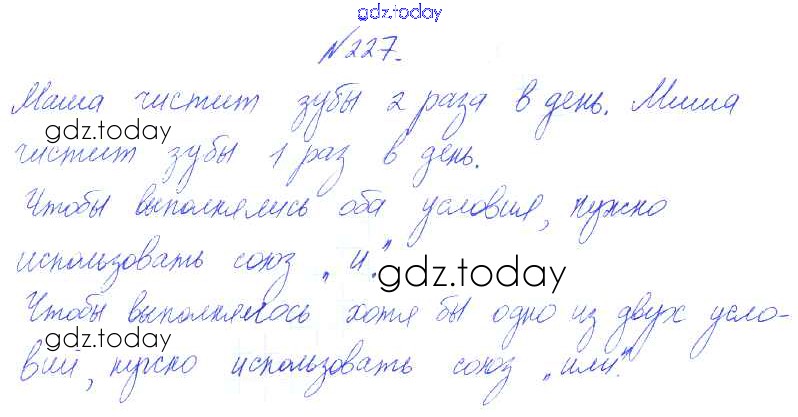 gdz.today
№227.
Маша чистит зубы 2 раза в день. Миша
gdz.today
чистит зубы 1 раз в день.
Чтобы выполнялись оба условия, нужно
использовать союз „и".
gdz.today
Чтобы выполнялось хотя бы одно из двух усло-
gdz.today
вий, нужно использовать союз „или".